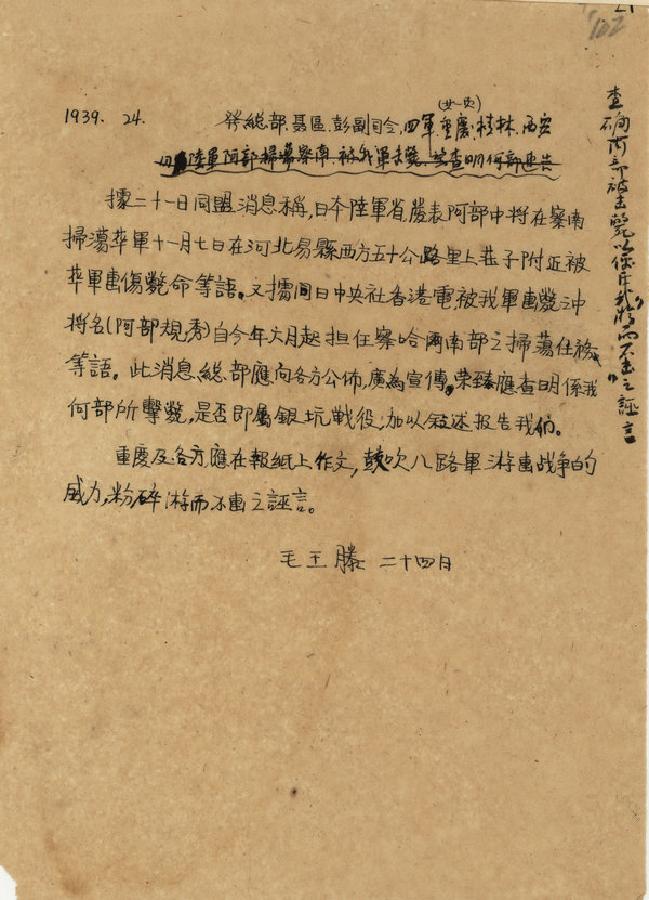 102
1939. 24.
發總部.聶區.彭副司令.四軍.重慶.桂林.西安
陸軍阿部掃蕩察南被我軍擊斃 查明何部
據二十一日同盟消息稱,日本陸軍省發表阿部中將在察南
掃蕩華軍十一月七日在河北易縣西方五十公路里上莊子附近被
華軍击傷斃命等語。又據同日中央社香港電,被我軍击斃之中
將名(阿部規秀)自今年六月起担任察哈爾南部之掃蕩任務
等語。此消息總部應向各方公佈,廣為宣傳。荣臻應查明係我
何部所擊斃,是否即屬銀坑戰役,加以敘述报告我们。
重慶及各方應在報紙上作文,鼓吹八路軍游击战争的
威力,粉碎游而不击之誣言。
毛王滕 二十四日
查確阿部被击斃以
游而不击之誣言